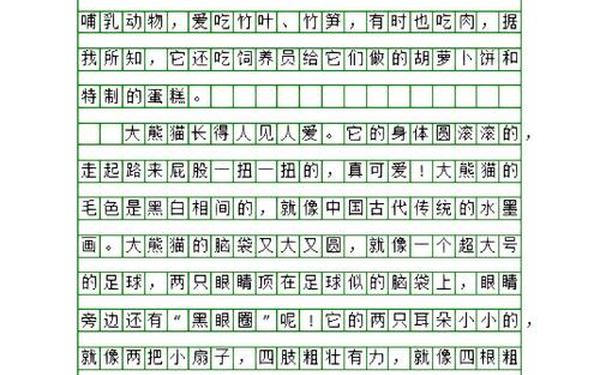 哺乳动物，爱吃竹叶、竹笋，有时也吃肉，据
我所知，它还吃饲养员给它们做的胡萝卜饼和
特制的蛋糕。
大熊猫长得人见人爱。它的身体圆滚滚的，
走起路来屁股一扭一扭的，真可爱！大熊猫的
毛色是黑白相间的，就像中国古代传统的水墨
画。大熊猫的脑袋又大又圆，就像一个超大号
的足球，两只眼睛顶在足球似的脑袋上，眼睛
旁边还有“黑眼圈”呢！它的两只耳朵小小的，
就像两把小扇子，四肢粗壮有力，就像四根粗